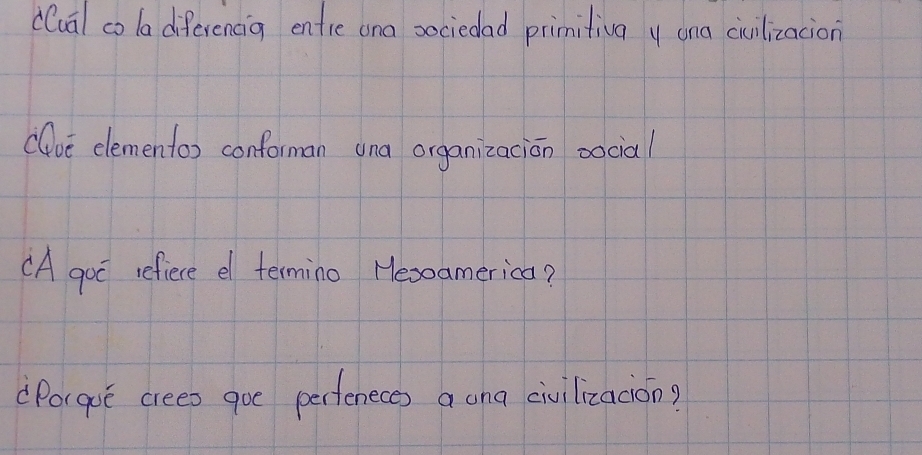 ¿Cuál es la diferencia entre una sociedad primitiva y una civilización
¿Qué elementos conforman una organización social
¿A qué refiere el termino Mesoamerica?
¿Porqué crees que perteneces a una civilización?